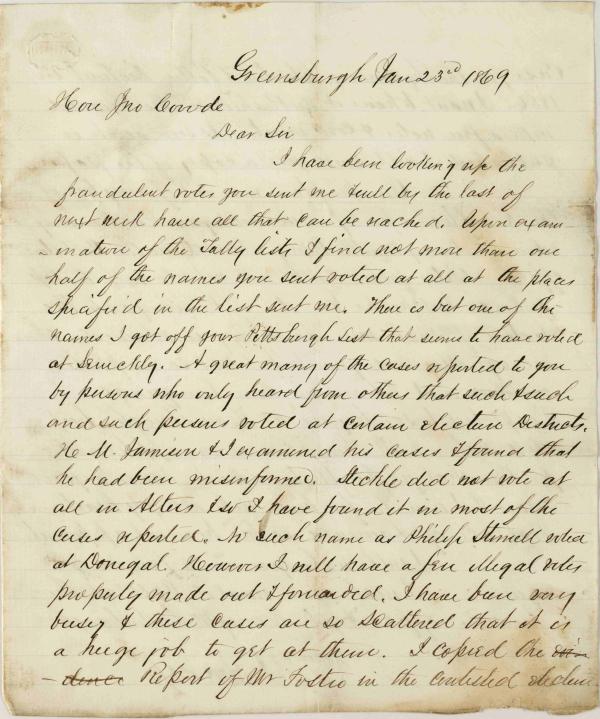 Greensburgh Jan 23rd 1869
Hon Jno Covode
Dear Sir
I have been looking up the
fraudulent votes you sent me & will by the last of
next week have all that can be reached. Upon exam-
-ination of the Tally lists I find not more than one
half of the names you sent voted at all at the places
specified in the list sent me. There is but one of the
names I got off your Pittsburgh List that seems to have voted
at Sewickly. A great many of the cases reported to you
by persons who only heard from others that such & such
and such persons voted at certain election Districts.
He M. Jamison & I examined his cases & found that
he had been misinformed. Steckle did not vote at
all in Alters & so I have found it in most of the
cases reported. No such name as Philip voted
at Donegal. However I will have a few illegal votes
properly made out & forwarded. I have been very
busy & these cases are so scattered that it is
a huge job to get at them. I copied the evi-
-dence Report of Mr Foster in the contested election